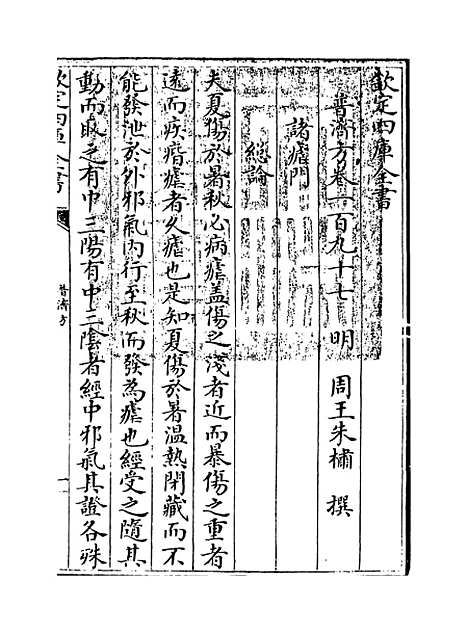 欽定四庫全書
普濟方卷一百九十七　明　周王朱橚　撰
諸瘧門
總論
夫夏傷於暑秋必病瘧蓋傷之淺者近而暴傷之重者
遠而痎痎瘧者久瘧也是知夏傷於暑溫熱閉藏而不
能發泄於外邪氣內行至秋而發為瘧也經受之隨其
動而取之有中三陽有中三陰者經中邪氣其證各殊
欽定四庫全書
普濟方
一